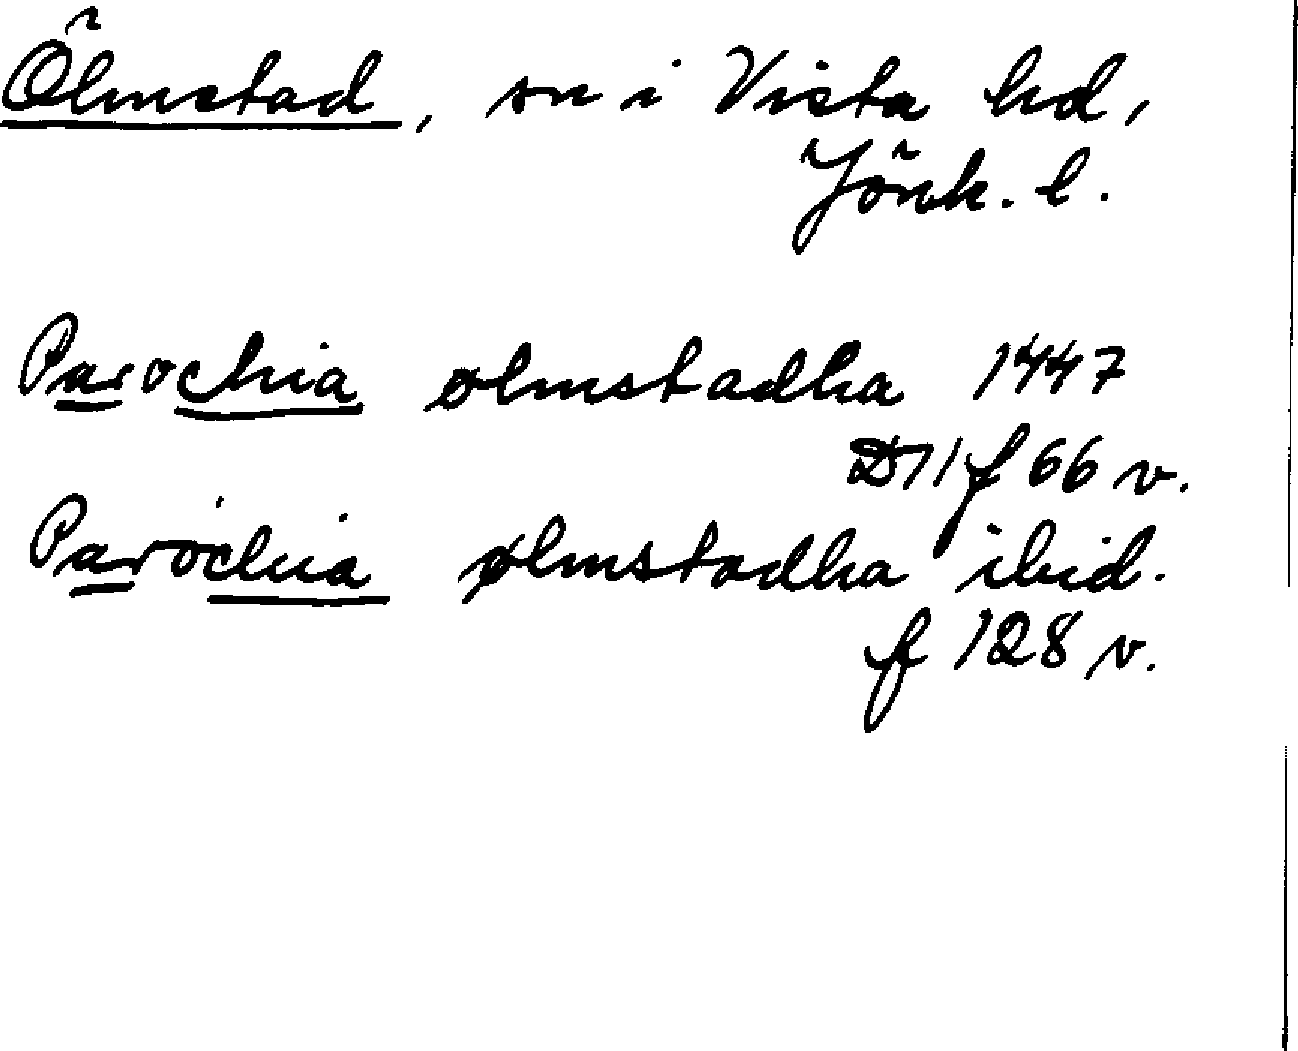 Ölmstad, sn i Vista hd,
Jönk. l.
Parochia ølmstadha 1447
D 11 f 66 v.
Parochia ølmstadha ibid.
f 128 v.